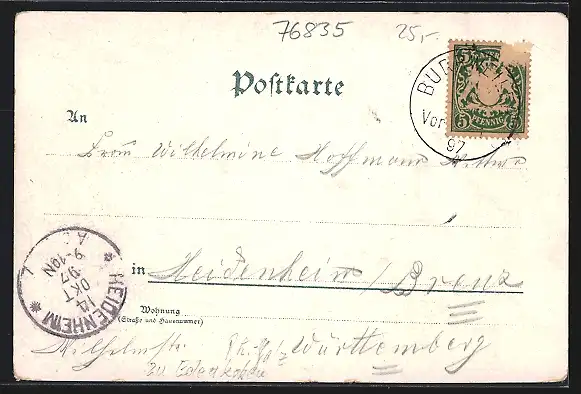 76835
25,-
Postkarte
BUR
Vor
97
5 5
PFENNIG
An
Frau Wilhelmine Hoffmann Witwe
in Heidenheim / Brenz
HEIDENHEIM
14
OKT
97
9-10N
Wohnung
(Straße und Hausnummer)
Wilhelmstr.
Württemberg
zu